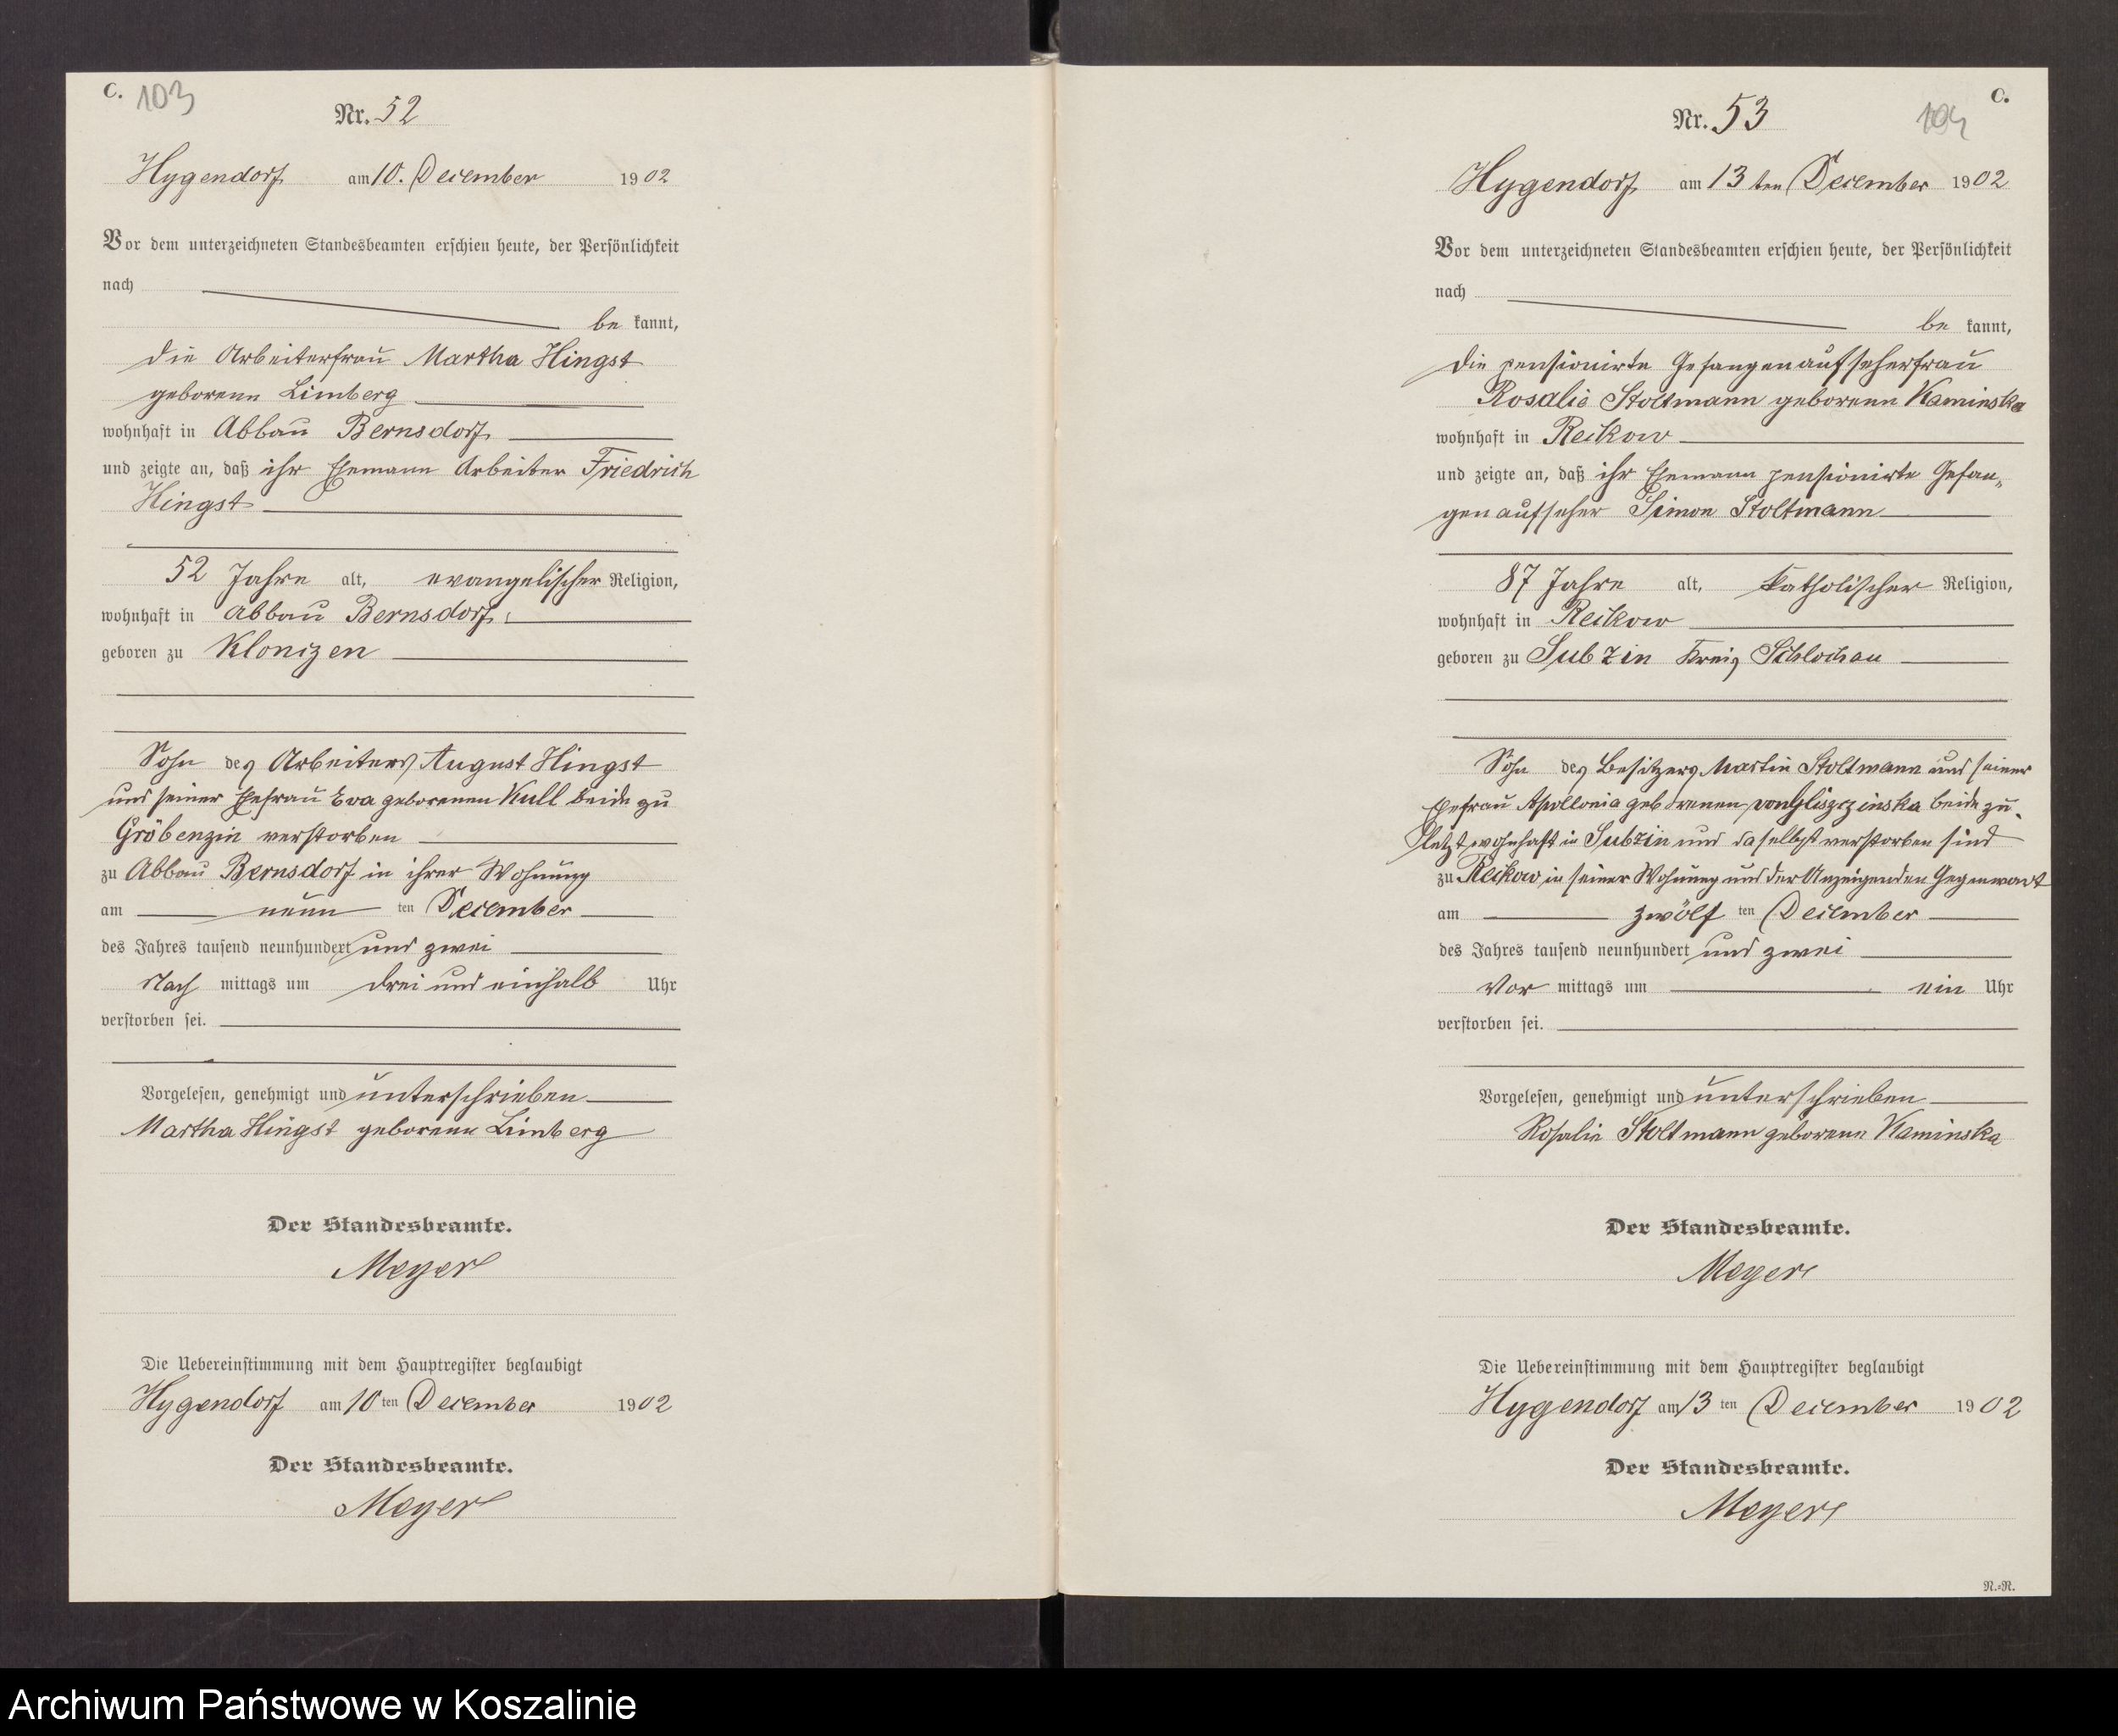 C. 103
Nr. 52
Hygendorf am 10. December 1902
Vor dem unterzeichneten Standesbeamten erschien heute, der Persönlichkeit
nach
be kannt,
die Arbeiterfrau Martha Hingst
geborene Limberg
wohnhaft in Abbau Bernsdorf
und zeigte an, daß ihr Ehemann Arbeiter Friedrich
Hingst
52 Jahre alt, evangelischer Religion,
wohnhaft in Abbau Bernsdorf
geboren zu Klonizen
Sohn des Arbeiters August Hingst
und seiner Ehefrau Eva geborenen Kull beide zu
Gröbenzin verstorben
zu Abbau Bernsdorf in ihrer Wohnung
am neun ten December
des Jahres tausend neunhundert und zwei
Nach mittags um drei und einhalb Uhr
verstorben sei.
Vorgelesen, genehmigt und unterschrieben
Martha Hingst geborene Limberg
Der Standesbeamte.
Meyer
Die Uebereinstimmung mit dem Hauptregister beglaubigt
Hygendorf am 10 ten December 1902
Der Standesbeamte.
Meyer
C.
104
Nr. 53
Hygendorf am 13 ten December 1902
Vor dem unterzeichneten Standesbeamten erschien heute, der Persönlichkeit
nach
be kannt,
die pensionirte Gefangenaufseherfrau
Rosalie Stoltmann geborene Kaminska
wohnhaft in Reckow
und zeigte an, daß ihr Ehemann pensionirte Gefan-
genaufseher Simon Stoltmann
87 Jahre alt, katholischer Religion,
wohnhaft in Reckow
geboren zu Subzin Kreis Schlochau
Sohn des Besitzers Martin Stoltmann und seiner
Ehefrau Apollonia geborenen von Gliszczinska beide zu-
letzt wohnhaft in Subzin und daselbst verstorben sind
zu Reckow in seiner Wohnung und der Anzeigenden Gegenwart
am zwölf ten December
des Jahres tausend neunhundert und zwei
Vor mittags um ein Uhr
verstorben sei.
Vorgelesen, genehmigt und unterschrieben
Rosalie Stoltmann geborene Kaminska
Der Standesbeamte.
Meyer
Die Uebereinstimmung mit dem Hauptregister beglaubigt
Hygendorf am 13 ten December 1902
Der Standesbeamte.
Meyer
N.=R.
Archiwum Państwowe w Koszalinie